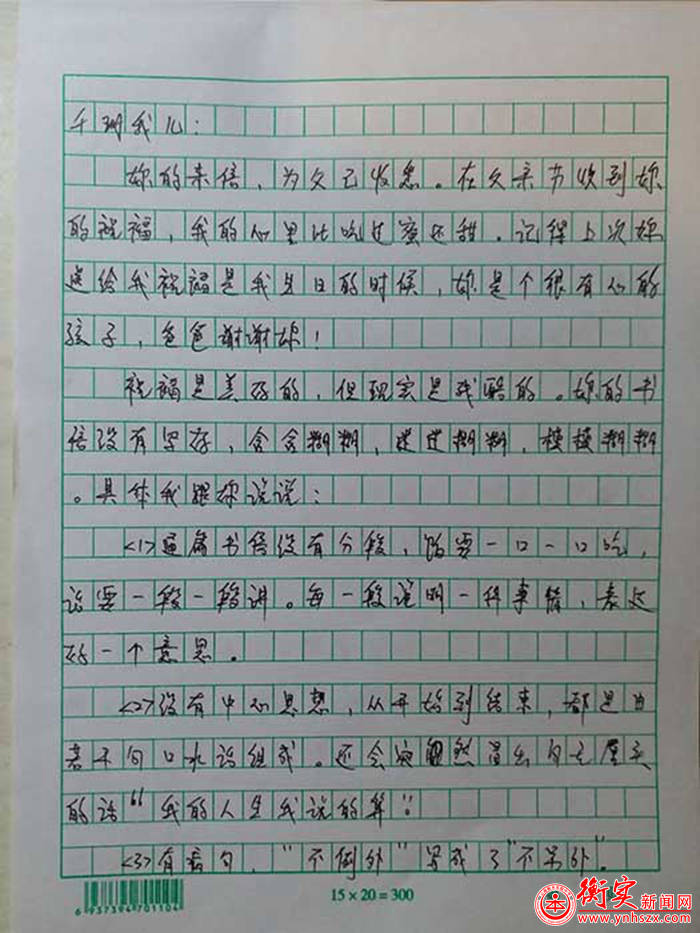 千珊我儿：
您的来信，为父已收悉。在父亲节收到您
的祝福，我的心里比吃过蜜还甜。记得上次您
送给我祝福是我生日的时候，您是个很有心的
孩子，爸爸谢谢您！
祝福是美好的，但现实是残酷的。您的书
信没有写好，含含糊糊，迷迷糊糊，模模糊糊
。具体我跟你说说：
<1>通篇书信没有分段，饭要一口一口吃，
话要一段一段讲。每一段说明一件事情，表达
好一个意思。
<2>没有中心思想，从开始到结束，都是由
若干句口水话组成。还会突然冒出句无厘头
的话“我的人生我说的算”！
<3>有病句，“不例外”写成了“不另外”。
15×20=300
6 937394 701104
衡实新闻网
www.ynhszx.com